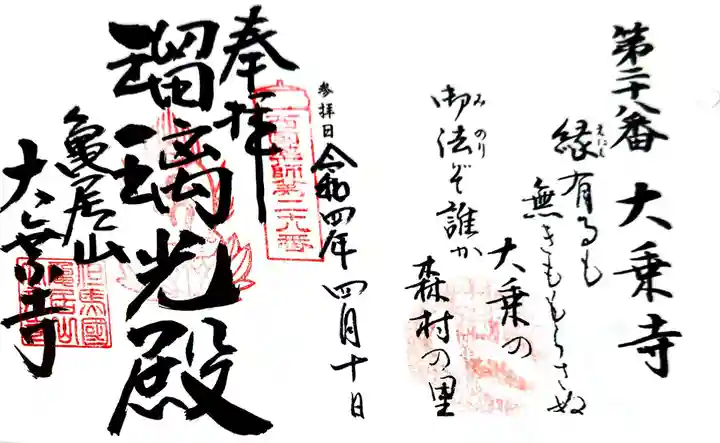 第二十八番 大乗寺
縁有るも
えにし
無きももらさぬ
大乗の
御法ぞ誰か
みのり
森村の里
参拝日 令和四年 四月十日
奉拝
西国薬師第二十八番
瑠璃光殿
亀居山
大乗寺
但馬國
亀居山